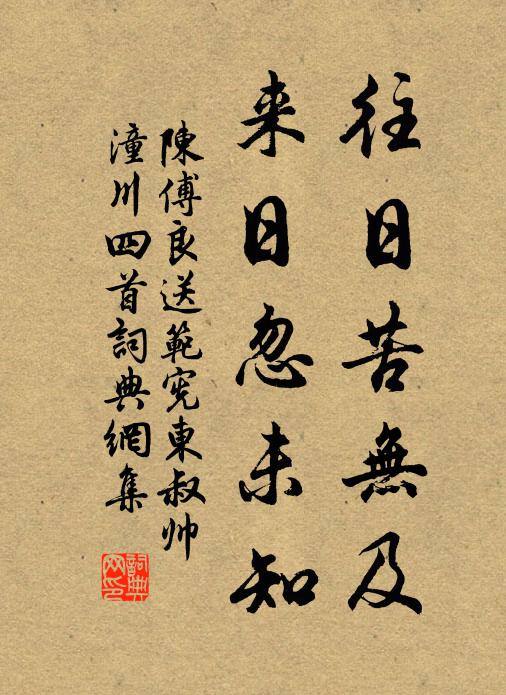 往日苦無及
来日忽未知
陳傅良送範憲東叔帅
潼川四首詞典網集
詞典
网印